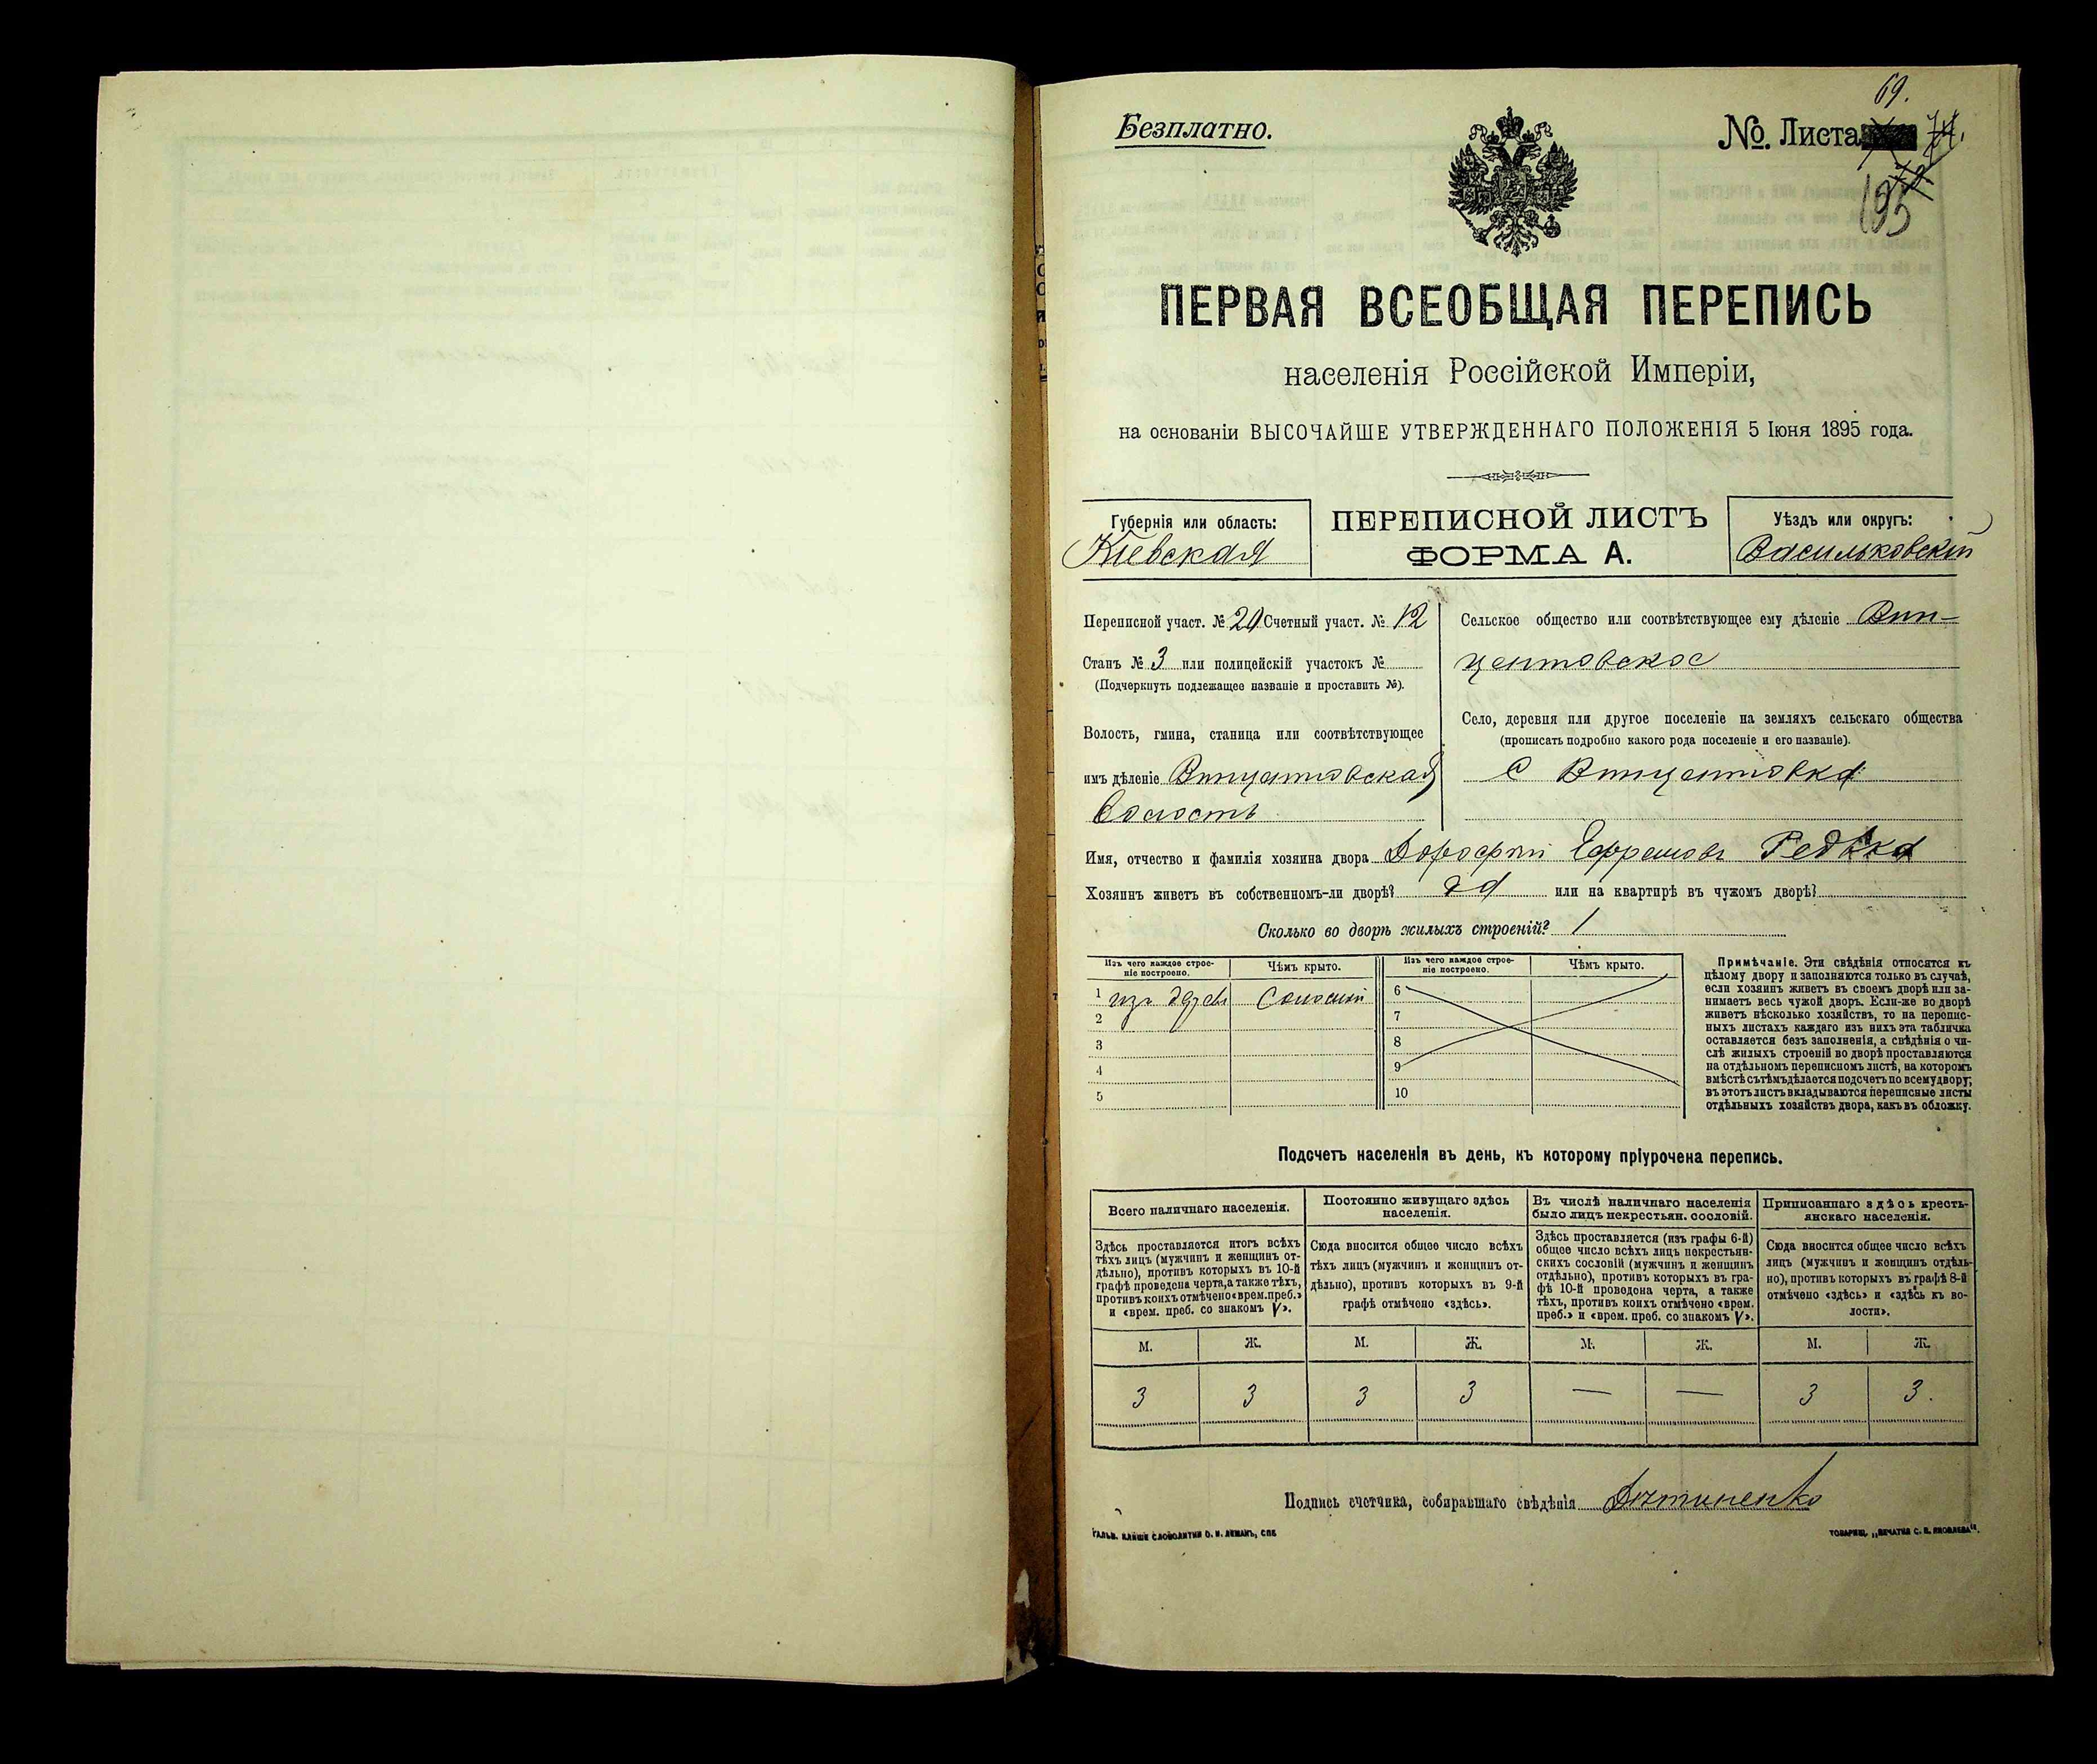 69.
Безплатно.
№. Листа 74.
195
ПЕРВАЯ ВСЕОБЩАЯ ПЕРЕПИСЬ
населенія Россійской Имперіи,
на основаніи ВЫСОЧАЙШЕ УТВЕРЖДЕННАГО ПОЛОЖЕНІЯ 5 Іюня 1895 года.
Губернія или область:
Кіевская
ПЕРЕПИСНОЙ ЛИСТЪ
ФОРМА А.
Уѣздъ или округъ:
Васильковскій
Переписной участ. № 20 Счетный участ. № 12
Станъ № 3 или полицейскій участокъ №
(Подчеркнуть подлежащее названіе и проставить №).
Волость, гмина, станица или соотвѣтствующее
имъ дѣленіе Винцентовская
Волость
Сельское общество или соотвѣтствующее ему дѣленіе Вин-
центовское
Село, деревня или другое поселеніе на земляхъ сельскаго общества
(прописать подробно какого рода поселеніе и его названіе).
С Винцентовка
Имя, отчество и фамилія хозяина двора Дорофей Ефремовъ Редька
Хозяинъ живетъ въ собственномъ-ли дворѣ? да или на квартирѣ въ чужомъ дворѣ?
Сколько во дворѣ жилыхъ строеній? 1
Изъ чего каждое строе-
ніе построено.
Чѣмъ крыто.
Изъ чего каждое строе-
ніе построено.
Чѣмъ крыто.
1 изъ дерев Соломой
2
3
4
5
6
7
8
9
10
Примѣчаніе. Эти свѣдѣнія относятся къ
цѣлому двору и заполняются только въ случаѣ,
если хозяинъ живетъ въ своемъ дворѣ или за-
нимаетъ весь чужой дворъ. Если-же во дворѣ
живетъ нѣсколько хозяйствъ, то на перепис-
ныхъ листахъ каждаго изъ нихъ эта табличка
оставляется безъ заполненія, а свѣдѣнія о чи-
слѣ жилыхъ строеній во дворѣ проставляются
на отдѣльномъ переписномъ листѣ, на которомъ
вмѣстѣ съ тѣмъ дѣлается подсчетъ по всему двору;
въ этотъ листъ вкладываются переписные листы
отдѣльныхъ хозяйствъ двора, какъ въ обложку.
Подсчетъ населенія въ день, къ которому пріурочена перепись.
Всего наличнаго населенія.
Постоянно живущаго здѣсь
населенія.
Въ числѣ наличнаго населенія
было лицъ некрестьян. сословій.
Приписаннаго здѣсь кресть-
янскаго населенія.
Здѣсь проставляется итогъ всѣхъ
тѣхъ лицъ (мужчинъ и женщинъ от-
дѣльно), противъ которыхъ въ 10-й
графѣ проведена черта, а также тѣхъ,
противъ коихъ отмѣчено «врем. преб.»
и «врем. преб. со знакомъ V».
Сюда вносится общее число всѣхъ
тѣхъ лицъ (мужчинъ и женщинъ от-
дѣльно), противъ которыхъ въ 9-й
графѣ отмѣчено «здѣсь».
Здѣсь проставляется (изъ графы 6-й)
общее число всѣхъ лицъ некрестьян-
скихъ сословій (мужчинъ и женщинъ
отдѣльно), противъ которыхъ въ гра-
фѣ 10-й проведена черта, а также
тѣхъ, противъ коихъ отмѣчено «врем.
преб.» и «врем. преб. со знакомъ V».
Сюда вносится общее число всѣхъ
лицъ (мужчинъ и женщинъ отдѣль-
но), противъ которыхъ въ графѣ 8-й
отмѣчено «здѣсь» и «здѣсь къ во-
лости».
М. Ж. М. Ж. М. Ж. М. Ж.
3 3 3 3 — — 3 3.
Подпись счетчика, собиравшаго свѣдѣнія
ТОВАРИЩ. „ПЕЧАТНЯ С. П. ЯКОВЛЕВА".